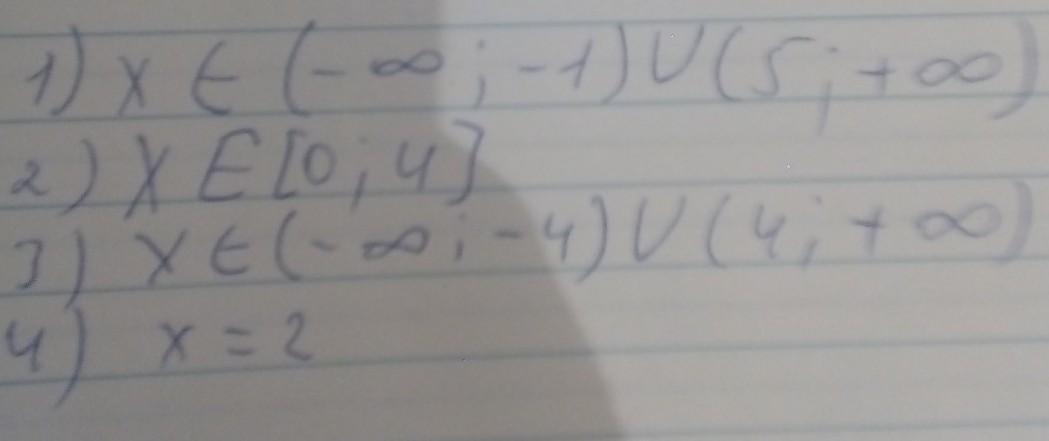 1) x ∈ (-∞; -1) ∪ (5; +∞)
2) x ∈ [0; 4]
3) x ∈ (-∞; -4) ∪ (4; +∞)
4) x = 2